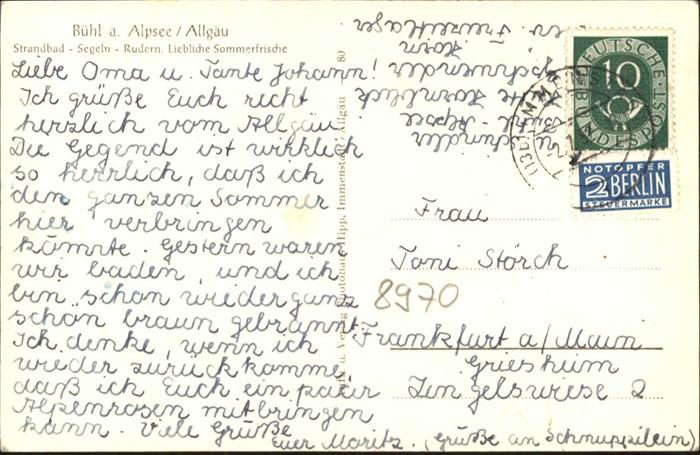 Bühl a. Alpsee / Allgäu
Strandbad - Segeln - Rudern. Liebliche Sommerfrische
Liebe Oma u. Tante Johann!
Ich grüße Euch recht
herzlich vom Allgäu
Die Gegend ist wirklich
so herrlich, daß ich
den ganzen Sommer
hier verbringen
könnte. Gestern waren
wir baden, und ich
bin schon wieder ganz
schon braun gebrannt.
Ich denke, wenn ich
wieder zurückkomme
daß ich Euch ein paar
Alpenrosen mitbringen
kann. Viele Grüße
Euer Moritz. (Grüße an Schnuppilein)
80
Hipp, Immenstadt / Allgäu
Alpsee
DEUTSCHE
10
BUNDESPOST
NOTOPFER
2 BERLIN
STEUERMARKE
Frau
Toni Störch
8970
Frankfurt a/Main
Griesheim
Lingelswiese 2